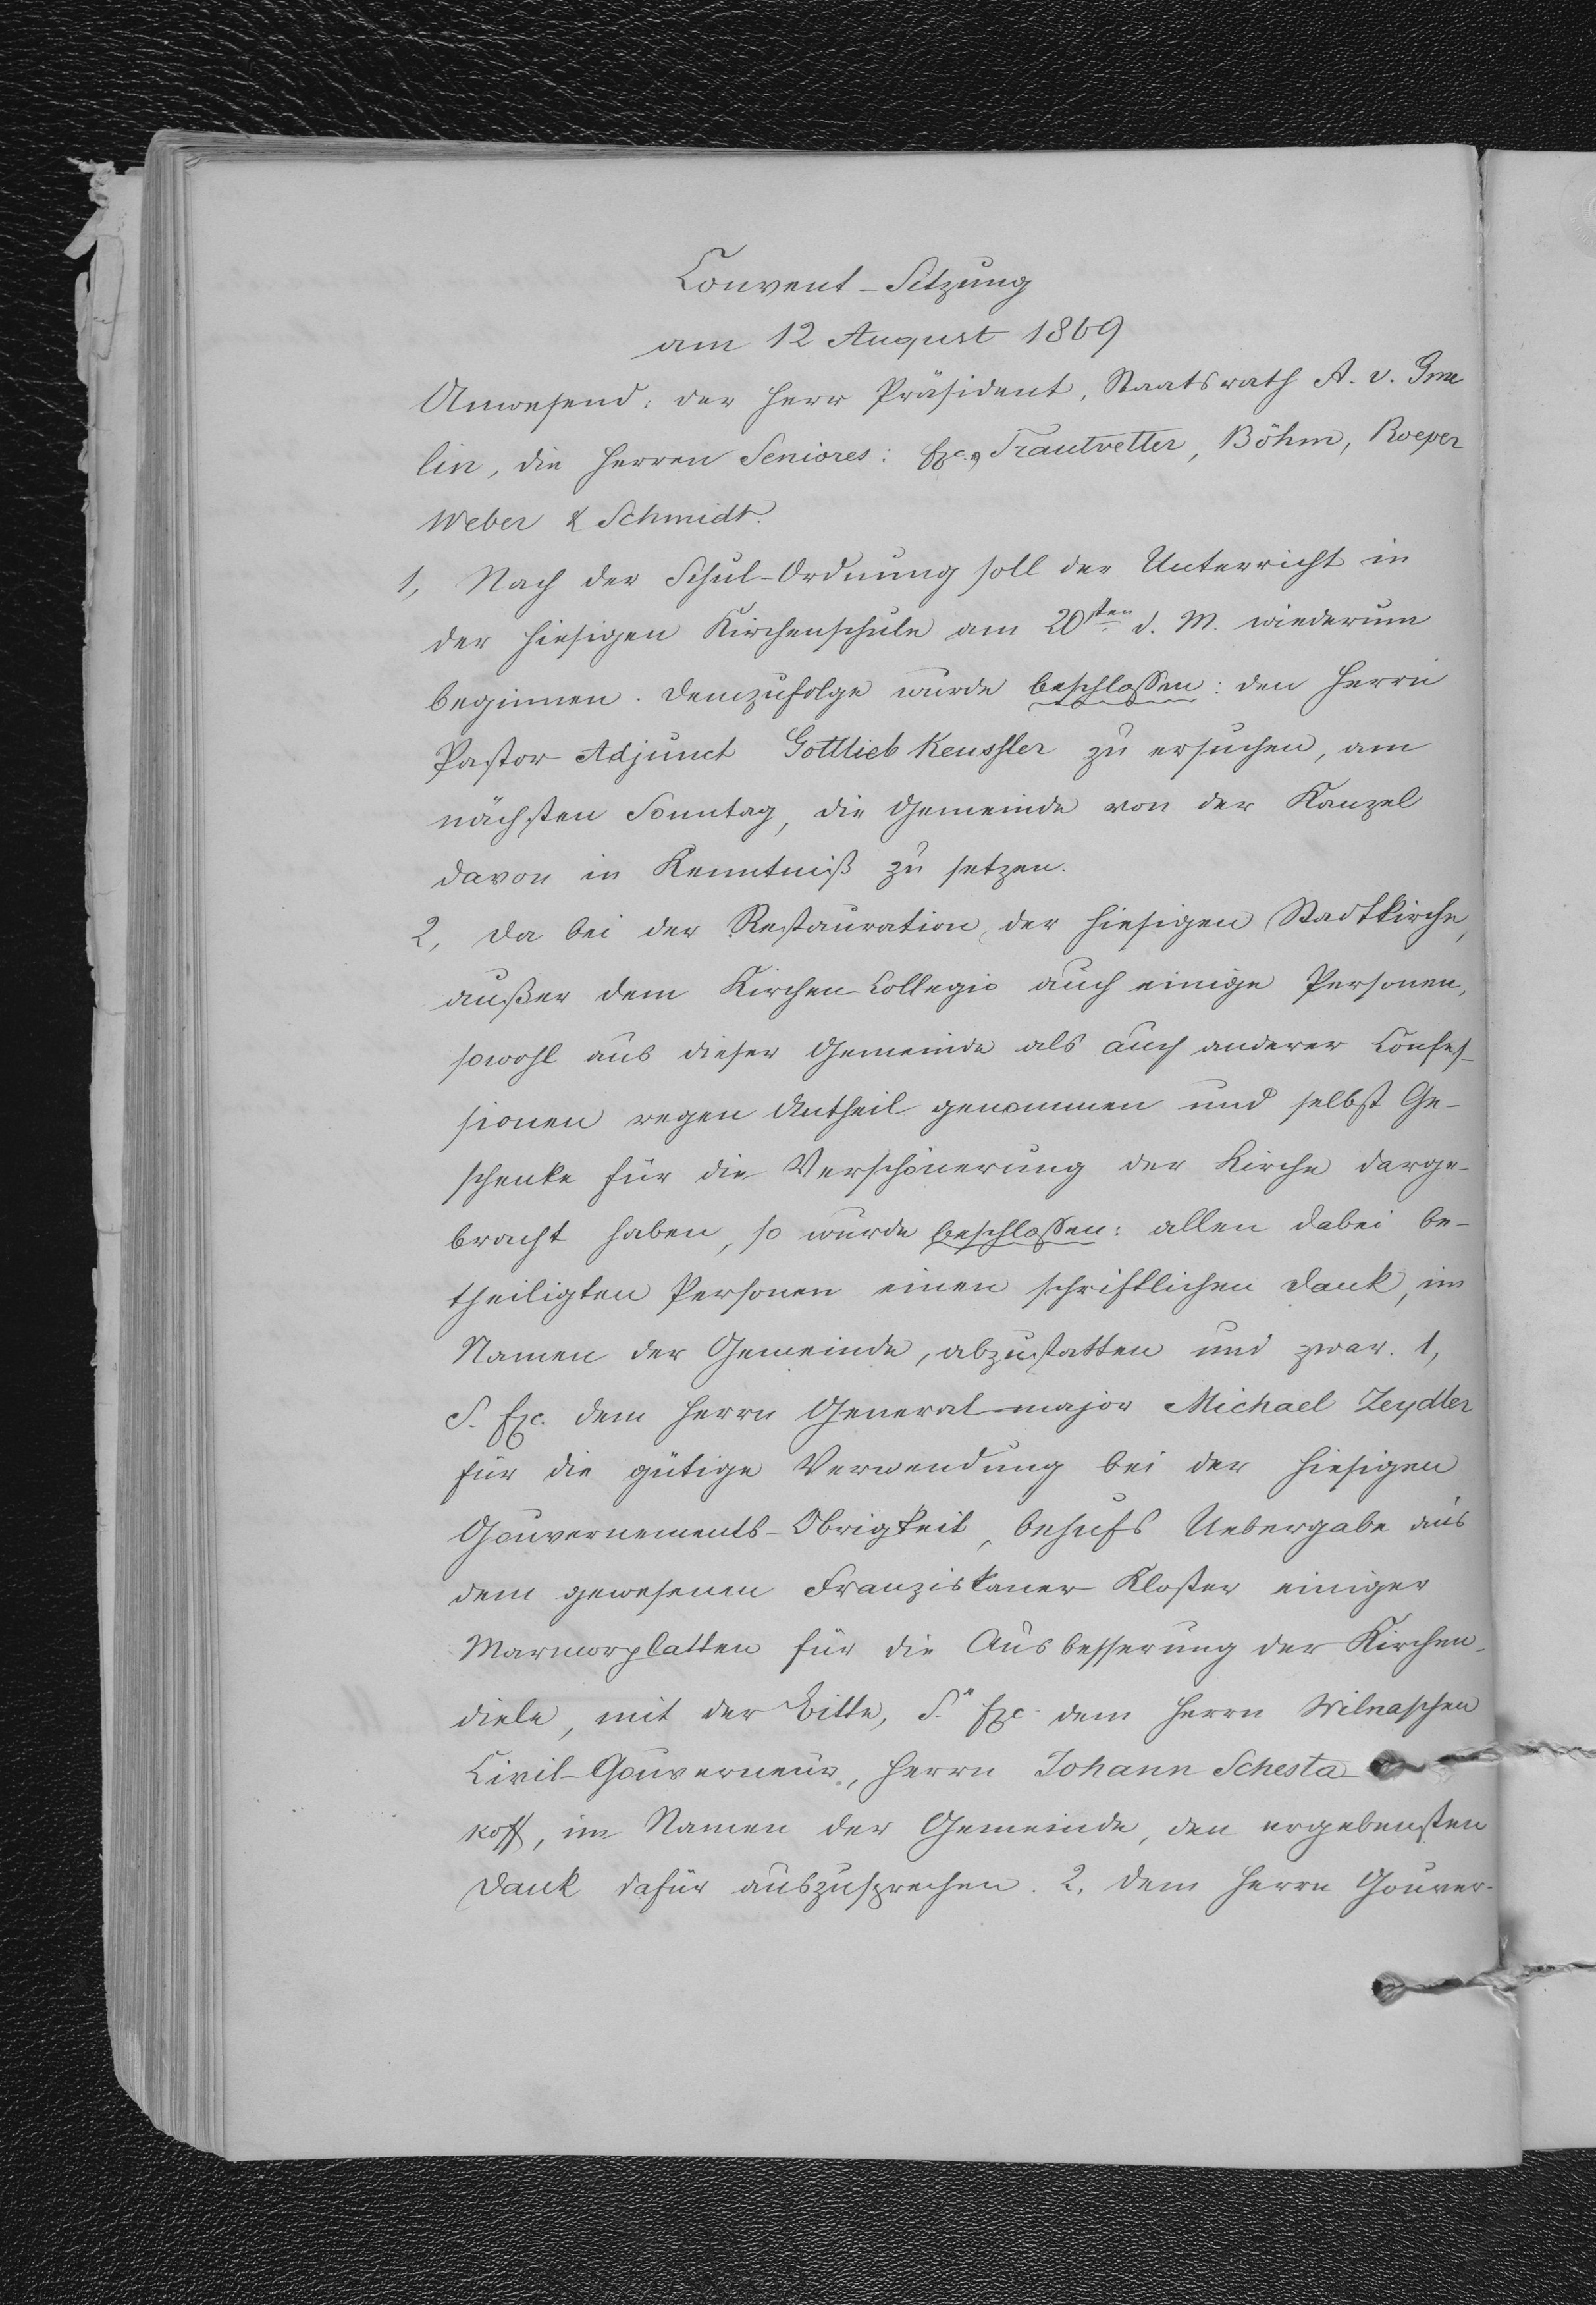 Convent-Sitzung
am 12 August 1869
Anwesend: der Herr Präsident, Staatsrath A. v. Gme
lin, die Herren Seniores: Exc. Trautvetter, Böhm, Roeper
Weber & Schmidt.
1, Nach der Schul-Ordnung soll der Unterricht in
der hiesigen Kirchenschule am 20sten d. M. wiederum
beginnen. Demzufolge wurde beschlossen: den Herrn
Pastor-Adjunct Gottlieb Keussler zu ersuchen, am
nächsten Sonntag, die Gemeinde von der Kanzel
davon in Kenntniß zu setzen.
2, Da bei der Restauration der hiesigen Stadtkirche,
außer dem Kirchen-Collegio auch einige Personen,
sowohl aus dieser Gemeinde als auch anderer Confes-
sionen regen Antheil genommen und selbst Ge-
schenke für die Verschönerung der Kirche darge-
bracht haben, so wurde beschlossen: allen dabei be-
theiligten Personen einen schriftlichen Dank, im
Namen der Gemeinde, abzustatten und zwar. 1,
S. Exc. dem Herrn General-major Michael Zeydler
für die gütige Verwendung bei der hiesigen
Gouvernements-Obrigkeit, behufs Uebergabe aus
dem gewesenen Franziskaner-Kloster einiger
Marmorplatten für die Ausbesserung der Kirchen-
diele, mit der Bitte, Sr Exc. dem Herrn Wilnaschen
Civil-Gouverneur, Herrn Johann Schesta-
koff, im Namen der Gemeinde, den ergebensten
Dank dafür auszusprechen. 2, dem Herrn Gouver-